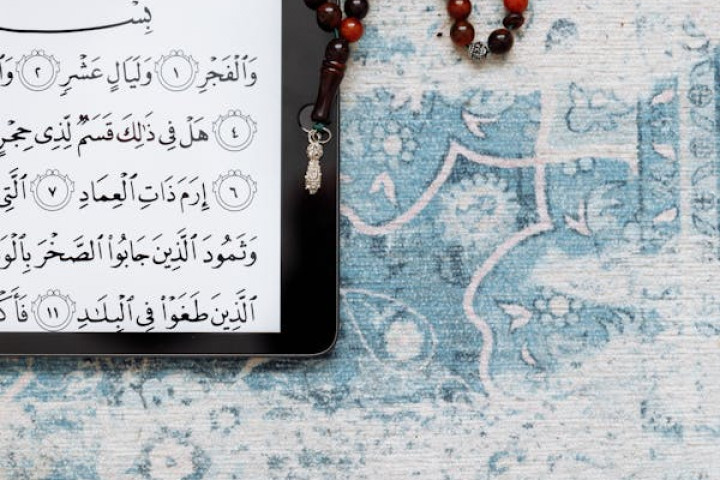 بِسْـ
وَٱلْفَجْرِ ١ وَلَيَالٍ عَشْرٍ ٢ وَٱ
٤ هَلْ فِى ذَٰلِكَ قَسَمٌ لِّذِى حِجْرٍ
٦ إِرَمَ ذَاتِ ٱلْعِمَادِ ٧ ٱلَّتِى
وَثَمُودَ ٱلَّذِينَ جَابُوا۟ ٱلصَّخْرَ بِٱلْوَ
ٱلَّذِينَ طَغَوْا۟ فِى ٱلْبِلَـٰدِ ١١ فَأَكـ